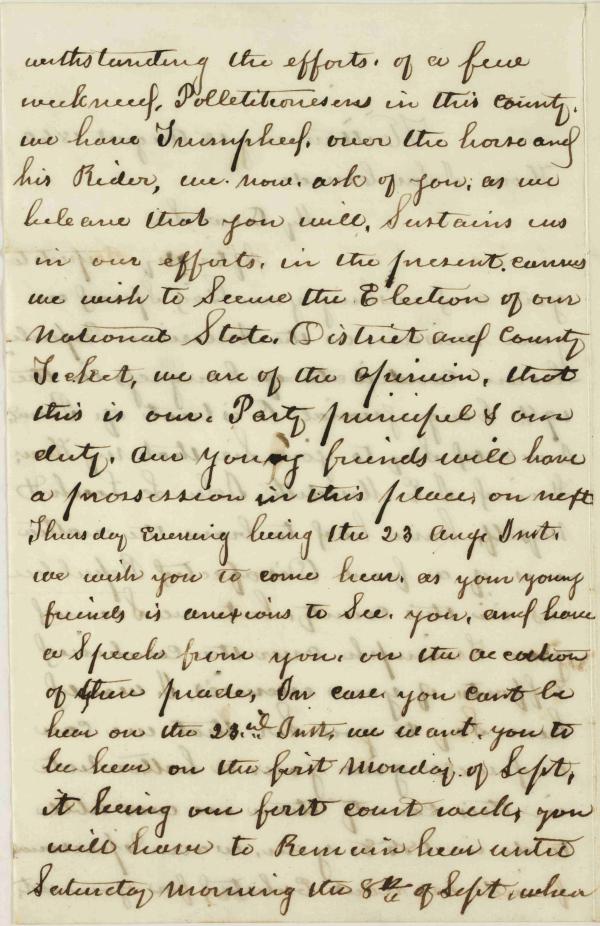 withstanding the efforts. of a few
weekneed. Polletitionesens in this county.
we have Triumphed. over the horse and
his Rider, we. now. ask of you; as we
beleave that you will. Sustains us
in our efforts. in the present. canvas
we wish to Secure the Election of our
National State. District and County
Ticket, we are of the opinion, that
this is our. Party principel & our
duty. Our young friends will have
a prossession in this place, on next
Thursday Evening being the 23 Aug. Inst.
we wish you to come hear. as your young
friends is anxious to See. you, and have
a Speech from you. on the occation
of there prade, In case, you cant be
hear on the 23.rd Inst, we want. you to
be hear on the first Monday. of Sept,
it being our first court week, you
will have to Remain hear until
Saturday Morning the 8th of Sept. when